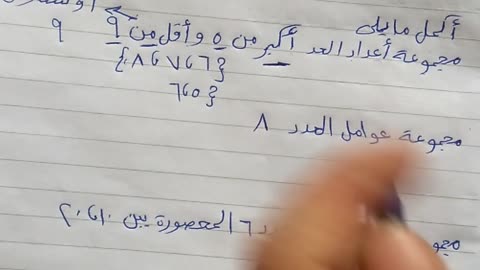 أكمل ما يلى
مجموعة أعداد العد أكبر من ٥ وأقل من ٩ ٩
{٨،٧،٦}
٦،٥}
مجموعة عوامل العدد ٨
٦ المحصورة بين ١٠، ٢٠